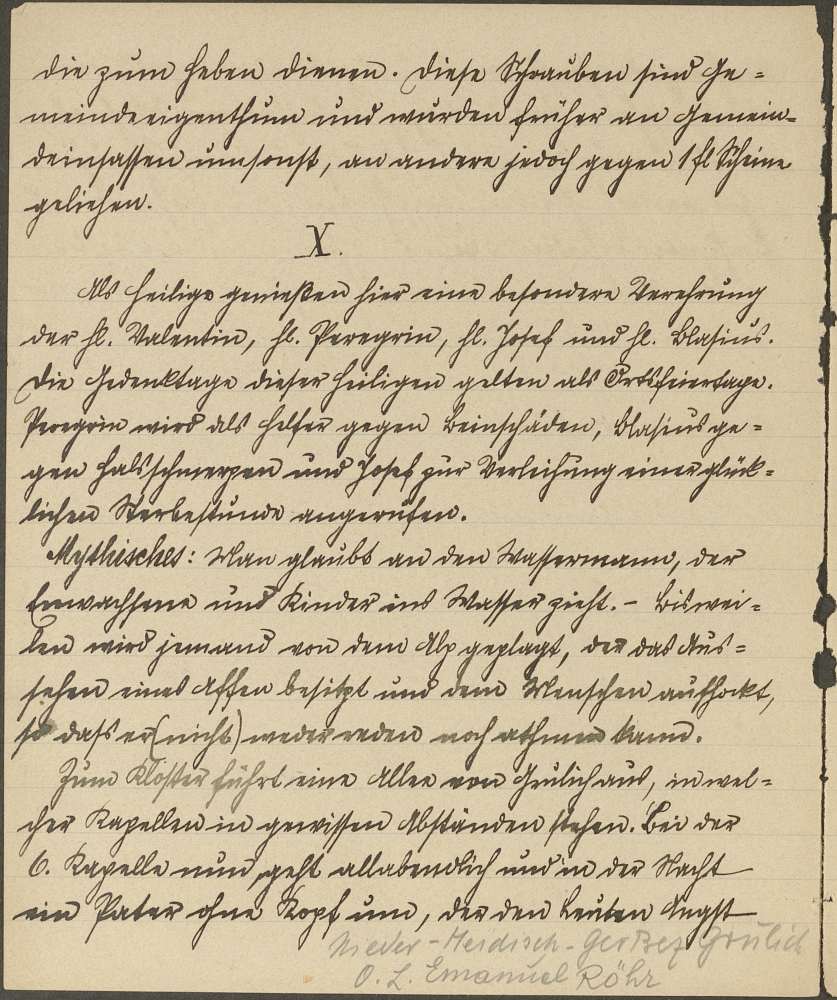 die zum Heben dienen. Diese Schrauben sind Ge=
meindeeigenthum und wurden früher an Gemein=
deinsassen umsonst, an andere jedoch gegen 1 fl Scheine
geliehen.
X.
Als Heilige genießen hier eine besondere Verehrung
der hl. Valentin, hl. Peregrin, hl. Josef und hl. Blasius.
Die Gedenktage dieser Heiligen gelten als Ortsfeiertage.
Peregrin wird als Helfer gegen Beinschäden, Blasius ge=
gen Halsschmerzen und Josef zur Verleihung einer glück=
lichen Sterbestunde angerufen.
Mythisches: Man glaubt an den Wassermann, der
Erwachsene und Kinder ins Wasser zieht. – Biswei=
len wird jemand von dem Alp geplagt, der das Aus=
sehen eines Affen besitzt und dem Menschen aufhockt,
so dass er (nicht) weder reden noch athmen kann.
Zum Kloster führt eine Allee von Grulich aus, in wel=
cher Kapellen in gewissen Abständen stehen. Bei der
6. Kapelle nun, geht allabendlich und in der Nacht
ein Pater ohne Kopf um, der den Leuten Angst
Nieder-Heidisch - GerBez Grulich
O. L. Emanuel Röhr